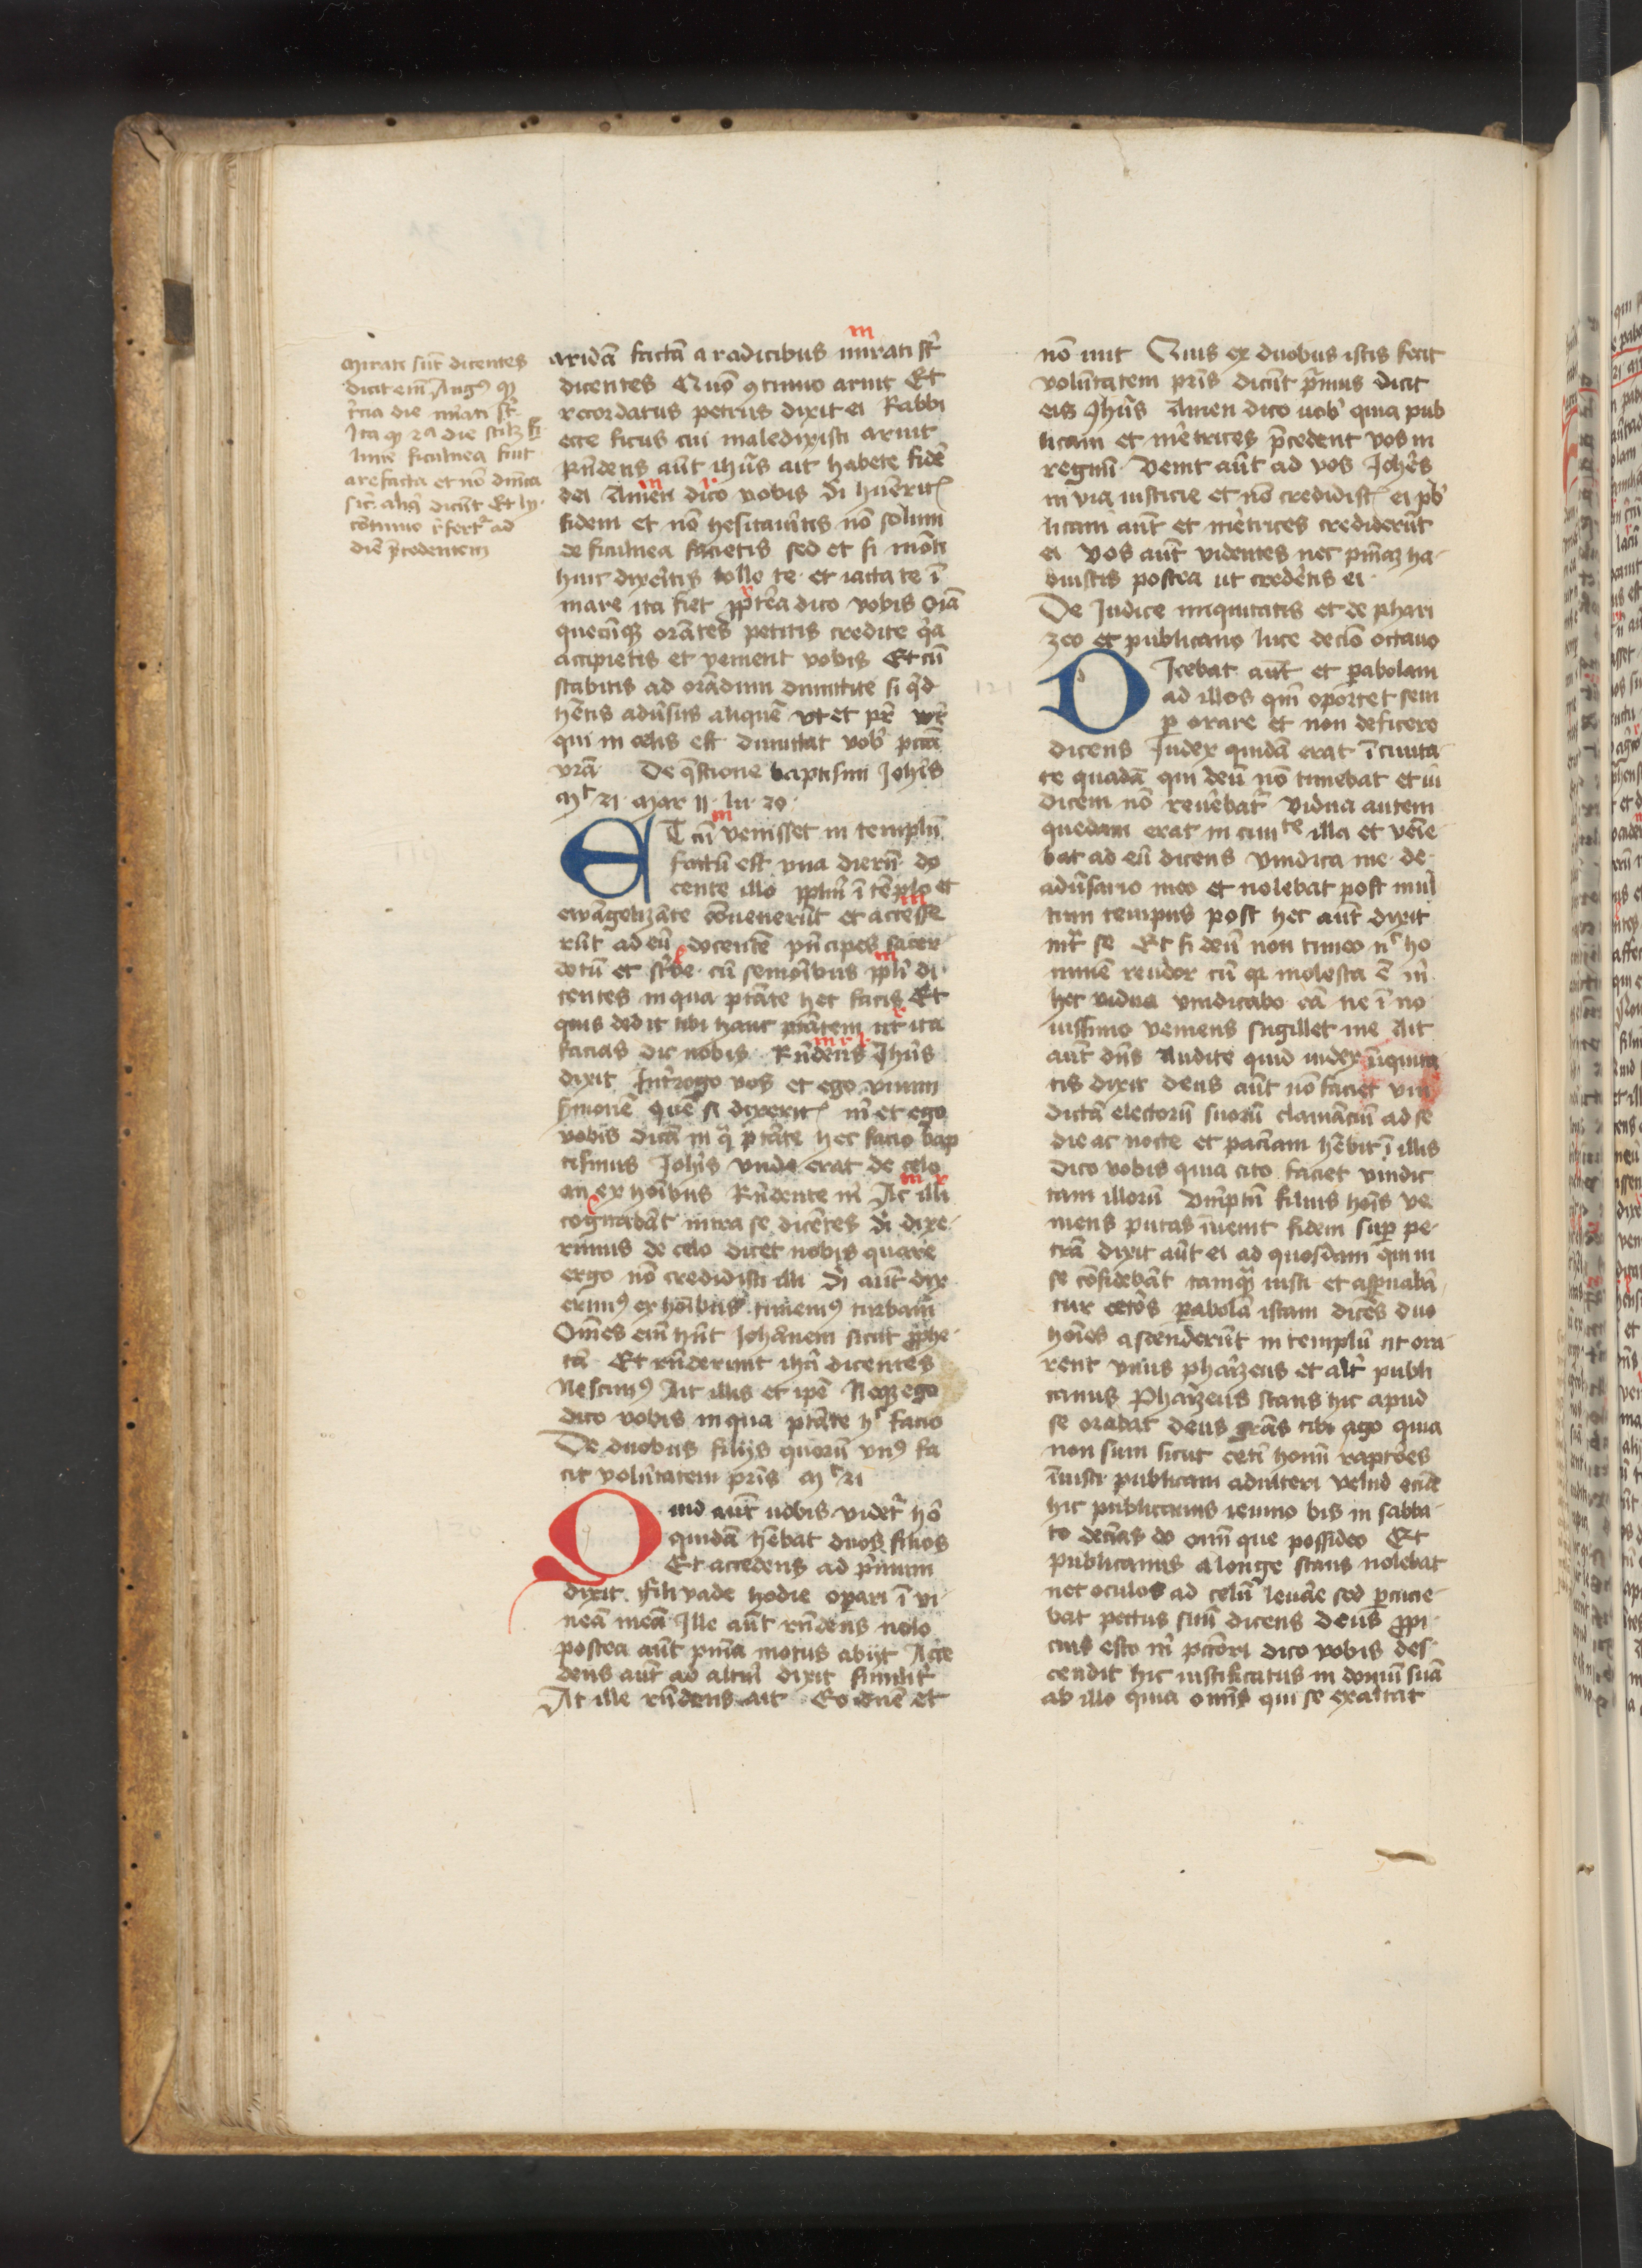 Mirati sūt dicentes
dicit eīm Augꝰ ꝙ
tercia die mirati st̄
Ita ꝙ 2a die scilꝫ fi
lune ficulnea fuit
arefacta et nō dnīca
sic̄ alij dicūt Et ly
cōtinuo refertᷣ ad
diē p̄cedentem
aridā factā a radicibus mirati st̄
dicentes Quō ꝯtinuo aruit Et
recordatus petrus dixit ei Rabbi
ecce ficus cui maledixisti aruit
Rn̄dens aūt ihūs ait habete fidē
dei Amen dico vobis Si hūerit⁊
fidem et nō hesitaūitis nō solum
de ficulnea facietis sed et si mōti
huic dixeritis tolle te et iacta te ī
mare ita fiet ꝓpterea dico vobis Oīa
quecūqꝫ orātes petitis credite qᵃ
accipietis et venient vobis Et cū
stabitis ad orādum dimittite si qᵈ
hētis adūsus aliquē vt et pr̄ vr̄
qui in celis est dimittat vob̄ pcc̄a
vrā De q̄stione baptismi Joh̄is
Mᵗ 21 Mar 11 lu 20
ET cū venisset in templū
factū est vna dierū do
cente illo ꝓplm̄ ī tēplo et
ewāgelizāte cōuenerūt et accesse
rūt ad eū docentē p̄ncipes sacer
dotū et sc̄be cū semoribus ꝓpli di
centes in qua ptāte hec facis Et
quis dedit tibi hanc ptātem ut ita
facias dic nobis Rn̄dens Jhūs
dixit Int̄rogo vos et ego vnum
s̄monē quē si dixerit⁊ m̄ et ego
vobis dicā in qᵃ ptāte hec facio bap
tismus Joh̄is vnde erat de celo
an ex hoībus Rn̄dente m̄ At illi
cogitabāt intra se dicētes Si dixe
rimus de celo dicet nobis quare
ergo nō credidisti illi Si aūt dix
erimꝰ ex hoībus timemꝰ turbam
Om̄es eīm hn̄t Johānem sicut ꝓphe
tā Et rn̄derunt ihū dicentes
Nescimꝰ Ait illis et ipē Neqꝫ ego
dico vobis in qua ptāte hᶜ facio
De duobus filijs quorū vnꝰ fa
cit volūtatem pr̄is Mᵗ 21
Quid aūt uobis videtᷣ hō
quidā hēbat duos filios
Et accedens ad p̄mum
dixit fili vade hodie oꝑari ī vi
neā meā Ille aūt rn̄dens nolo
postea aūt pnīa motus abijt Acce
dens aūt ad altm̄ dixit similit̄
At ille rn̄dens ait Eo dn̄e et
nō iuit Quis ex duobus istis fecit
volūntatem pr̄is dicūt p̄mus dicit
eis Jhūs Amen dico uob̄ quia pub
licani et mēretrices p̄cedent vos in
regnū Venit aūt ad vos Joh̄es
in via iusticie et nō credidist⁊ ei pb̄
licani aūt et mēretrices crediderūt
ei Vos aūt videntes nec pnīaꝫ ha
buistis postea ut crederitis ei
De Judice iniquitatis et de phari
zeo et publicano luce decīo octauo
DIcebat aūt et ꝑabolam
ad illos qm̄ oportet sem
ꝑ orare et non deficere
dicens Judex quidā erat ī ciuita
te quadā qui deū nō timebat et iu
dicem nō reuēbatᷣ vidua autem
quedam erat in ciuiᵗᵉ illa et venie
bat ad eū dicens vindica me de
adūsario meo et nolebat post mul
tum tempus post hec aūt dixit
intᷣ se Et si deū non timeo nᶜ ho
minē reudor cū qr molesta ē m̄
hec vidua vindicabo eā ne ī no
uissimo veniens sugillet me Ait
aūt dn̄s Audite quid iudex īiquita
tis dixit deus aūt nō faciet vin
dictā electorū suorū clamāciū ad se
die ac nocte et paciam hēbit ī illis
Dico vobis quia cito faciet vindic
tam illorū Vmptn̄ filius hoīs ve
niens putas īueniet fidem suꝑ pe
trā dixit aūt ei ad quosdam qui in
se cōfidebāt tamqᵃ iusti et asp̄nabā
tur cetōs ꝑabolā istam dicēs duo
hoīes ascenderūt in templū ut ora
rent vnus pharizeus et alt̄ publi
canus Pharizeus stans hic apud
se orabat deus grās tibi ago quia
non sum sicut cetī homī raptōes
īiusti publicani adulteri velud eciā
hic publicanus ieiuno bis in sabba
to decīas do omī que possideo Et
publicanus a longe stans nolebat
nec oculos ad celū leuāe sed ꝑcucie
bat pectus suū dicens deus ꝓpi
cius esto m̄ pctōri dico vobis des
cendit hic iustificatus in domū suā
ab illo quia omīs qui se exaltat